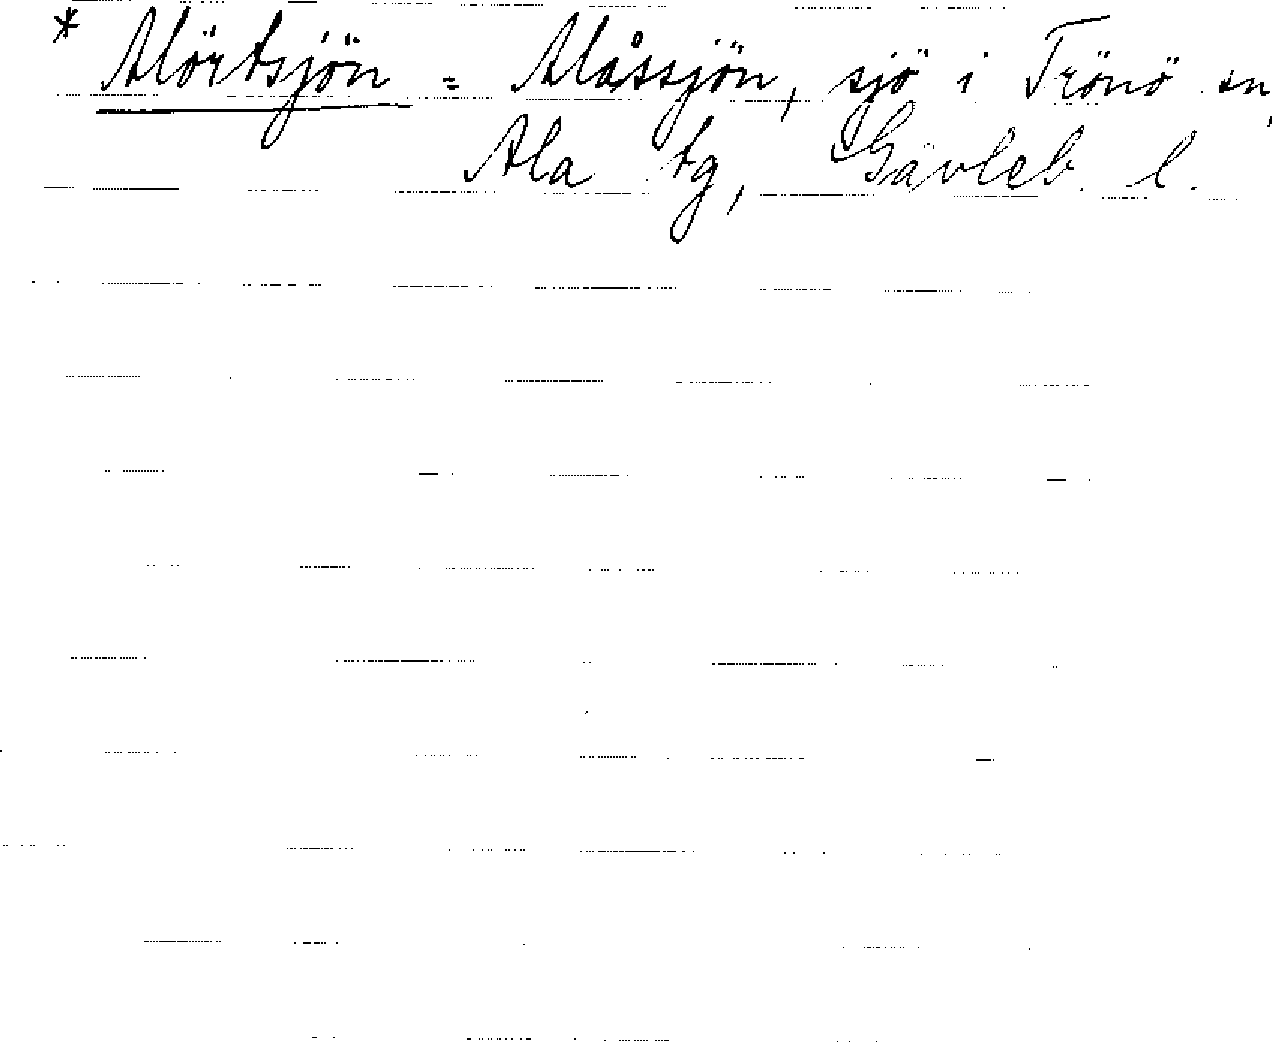 * Alörtsjön = Alåssjön, sjö i Trönö sn,
Ala tg, Gävleb. l.